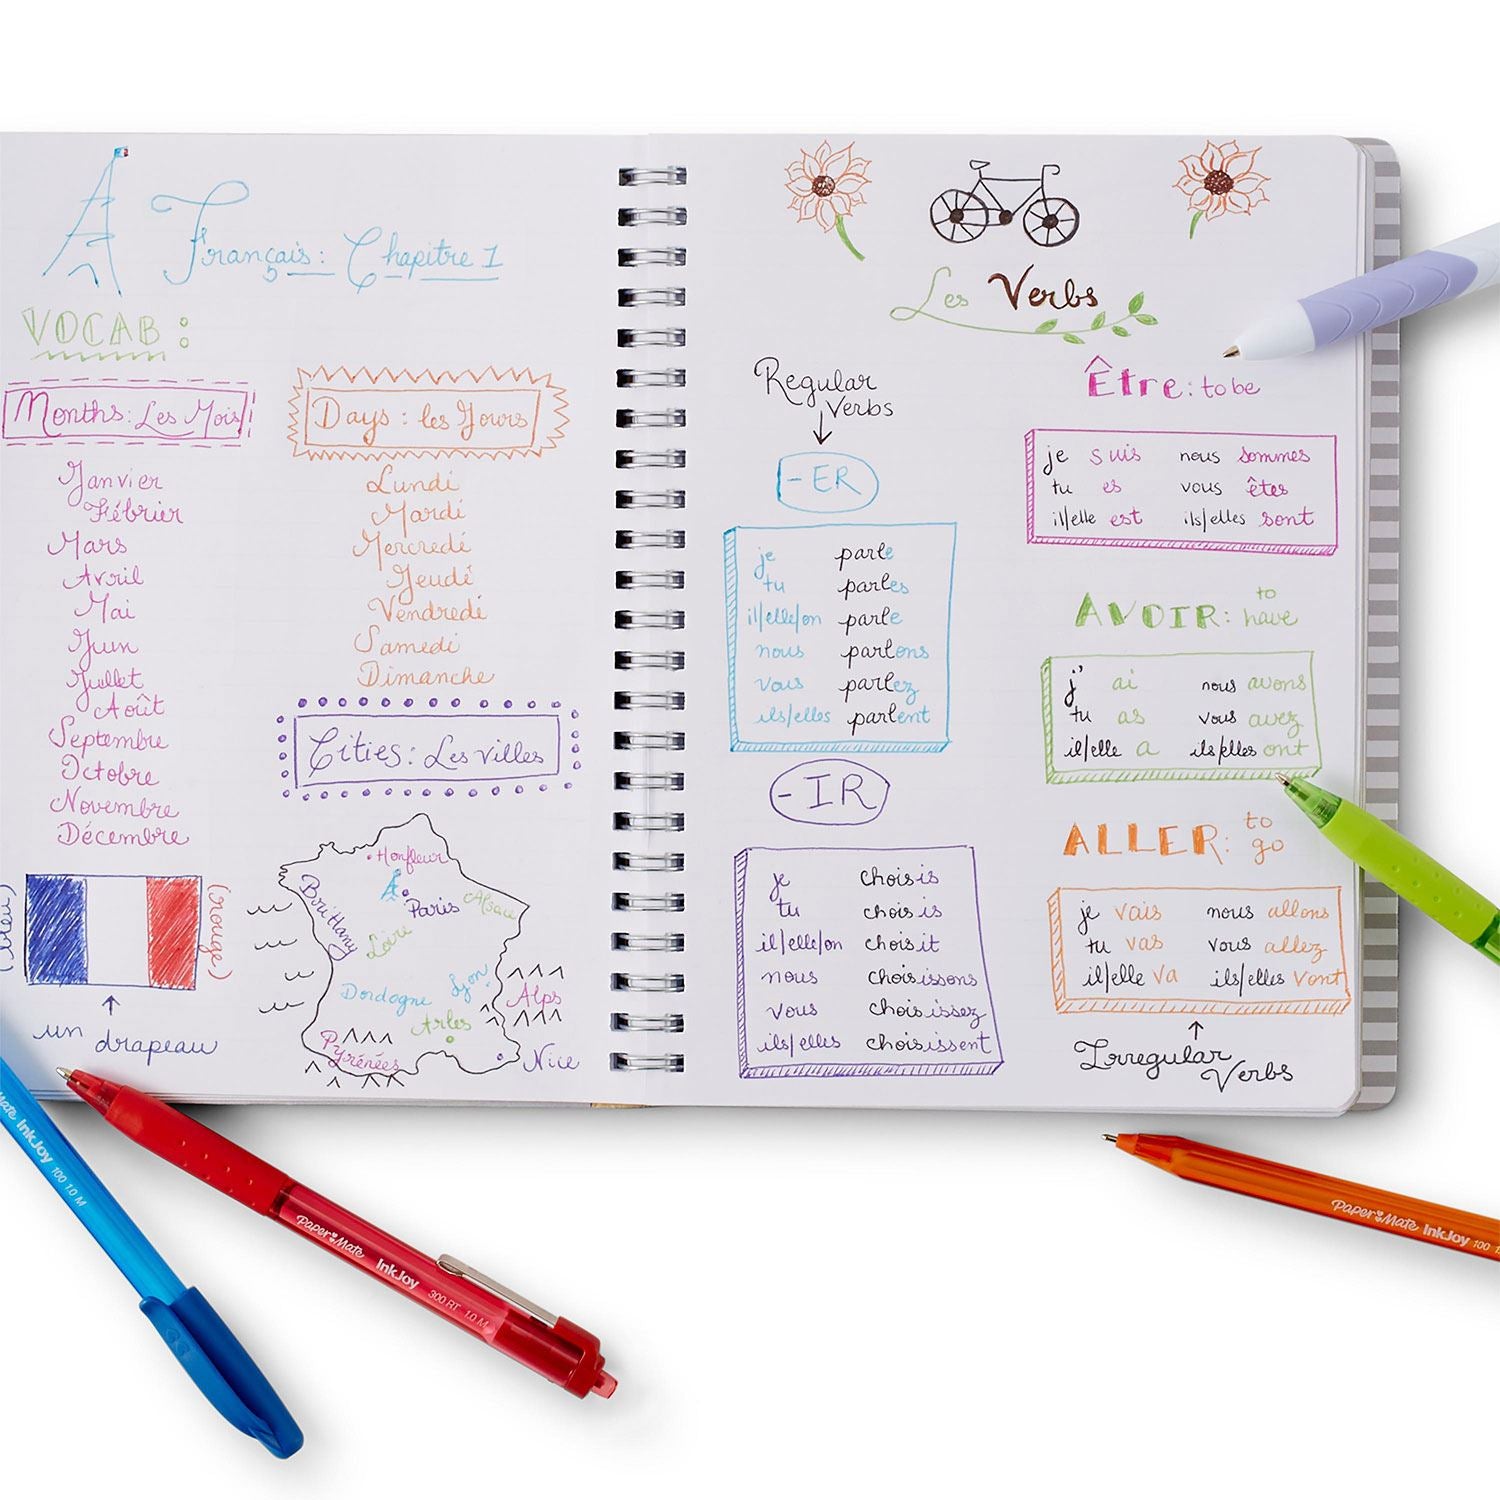 Français: Chapitre 1
VOCAB:
Months: Les Mois
Janvier
Fébrier
Mars
Avril
Mai
Juin
Juillet
Août
Septembre
Octobre
Novembre
Décembre
Days: les Jours
Lundi
Mardi
Mercredi
Jeudi
Vendredi
Samedi
Dimanche
Cities: Les villes
(bleu)
(rouge)
un drapeau
Honfleur
Paris
Alsace
Brittany
Loire
Lyon
Dordogne
Alps
Arles
Pyrénées
Nice
Les Verbs
Regular
Verbs
-ER
je parle
tu parles
il/elle/on parle
nous parlons
vous parlez
ils/elles parlent
-IR
je choisis
tu choisis
il/elle/on choisit
nous choisissons
vous choisissez
ils/elles choisissent
Être: to be
je suis nous sommes
tu es vous êtes
il/elle est ils/elles sont
AVOIR: to have
j' ai nous avons
tu as vous avez
il/elle a ils/elles ont
ALLER: to go
je vais nous allons
tu vas vous allez
il/elle va ils/elles vont
Irregular
Verbs
Mate InkJoy 100 1.0 M
Paper Mate InkJoy 300 RT 1.0 M
Paper Mate InkJoy 100